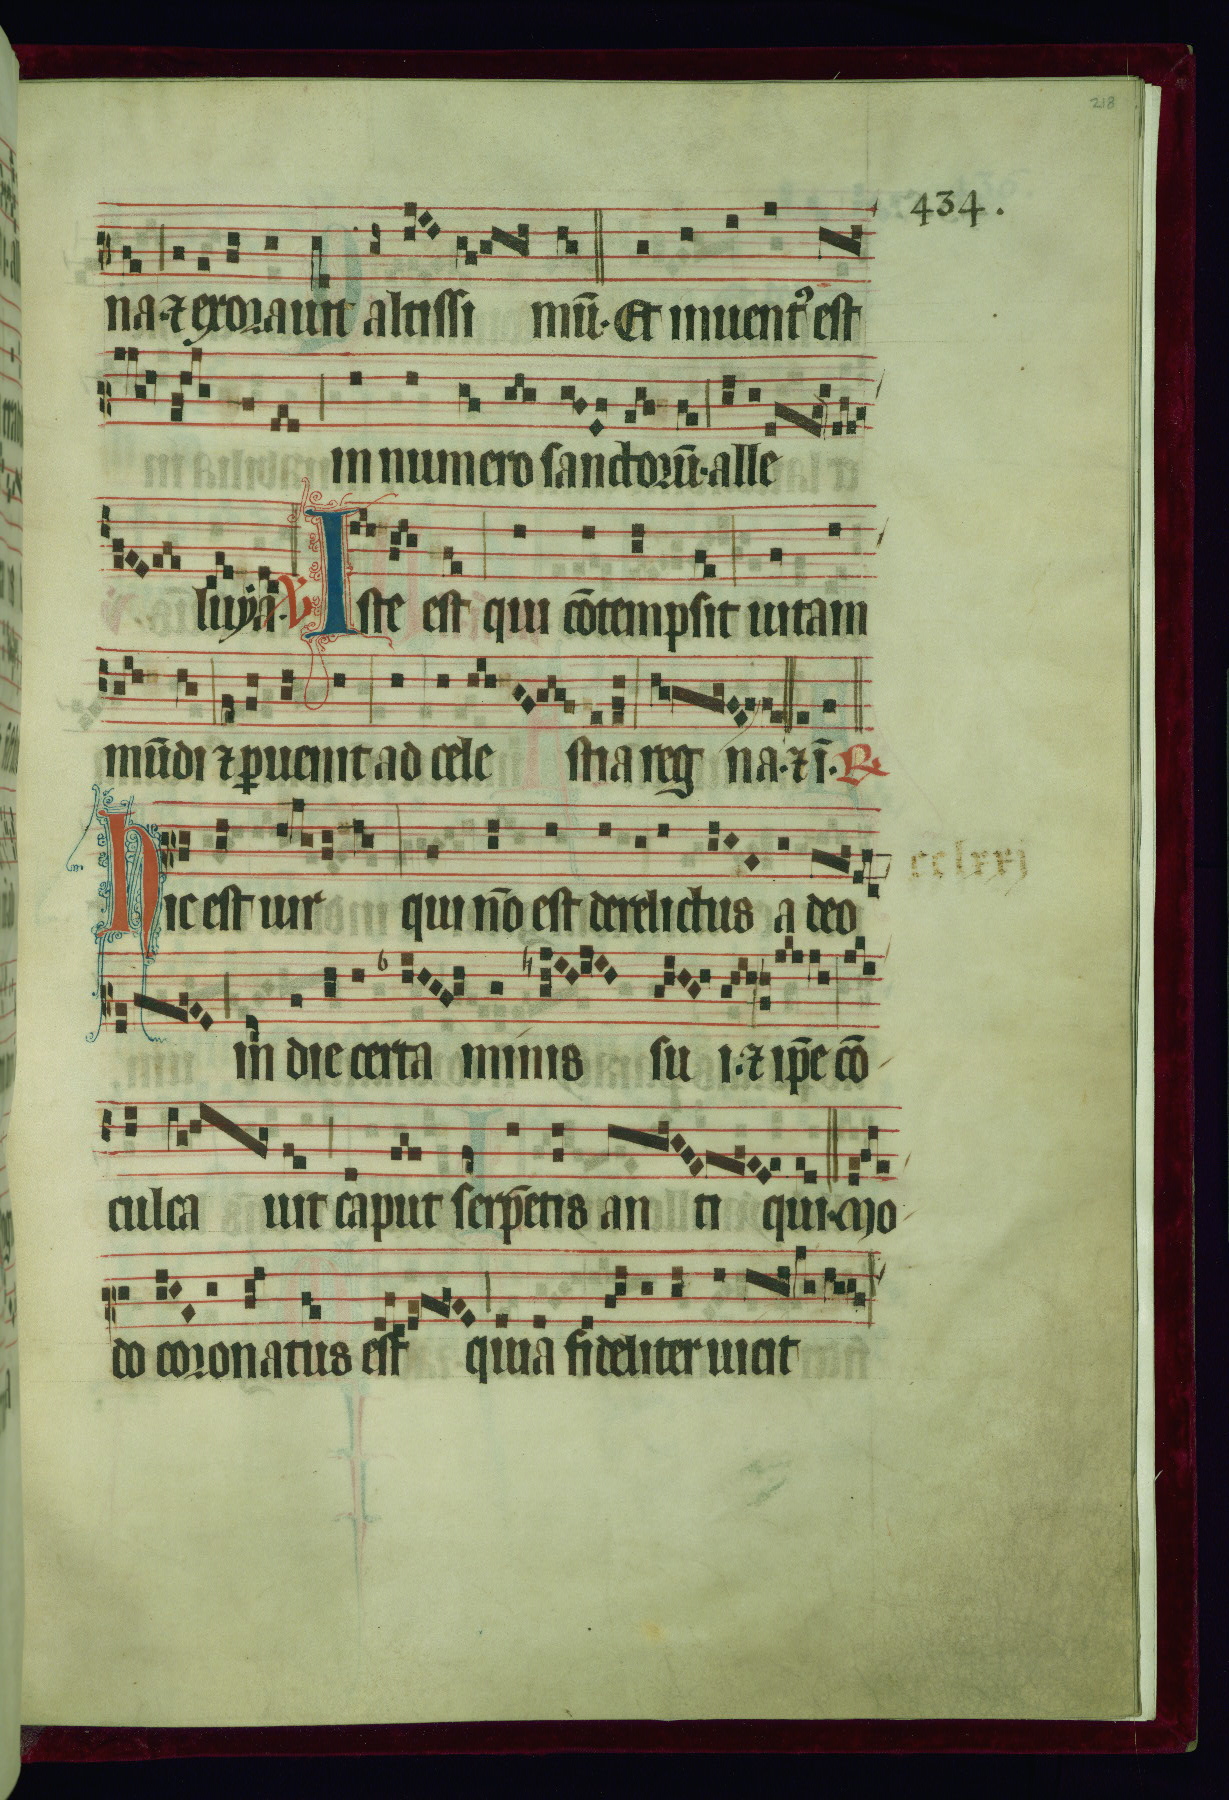 218
434.
na·⁊ exorauit altissi mū· Et inuentꝰ est
in numero sanctorū·alle
luya· V Iste est qui cōtempsit uitam
mūdi ⁊ ꝑuenit ad cele stia reg na·⁊ ī· R.
Hic est uir qui nō est derelictus a deo
cclxxj
in die certa minis su i·⁊ ip̄e cō
culca uit caput serpētis an ti qui·Mo
do coronatus est quia fideliter uicit